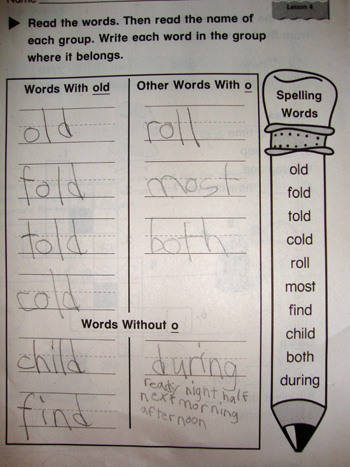 Name
Lesson 4
Read the words. Then read the name of
each group. Write each word in the group
where it belongs.
Words With old
Other Words With o
old
roll
fold
most
told
both
cold
Words Without o
child
during
find
ready night half
next morning
afternoon
Spelling
Words
old
fold
told
cold
roll
most
find
child
both
during